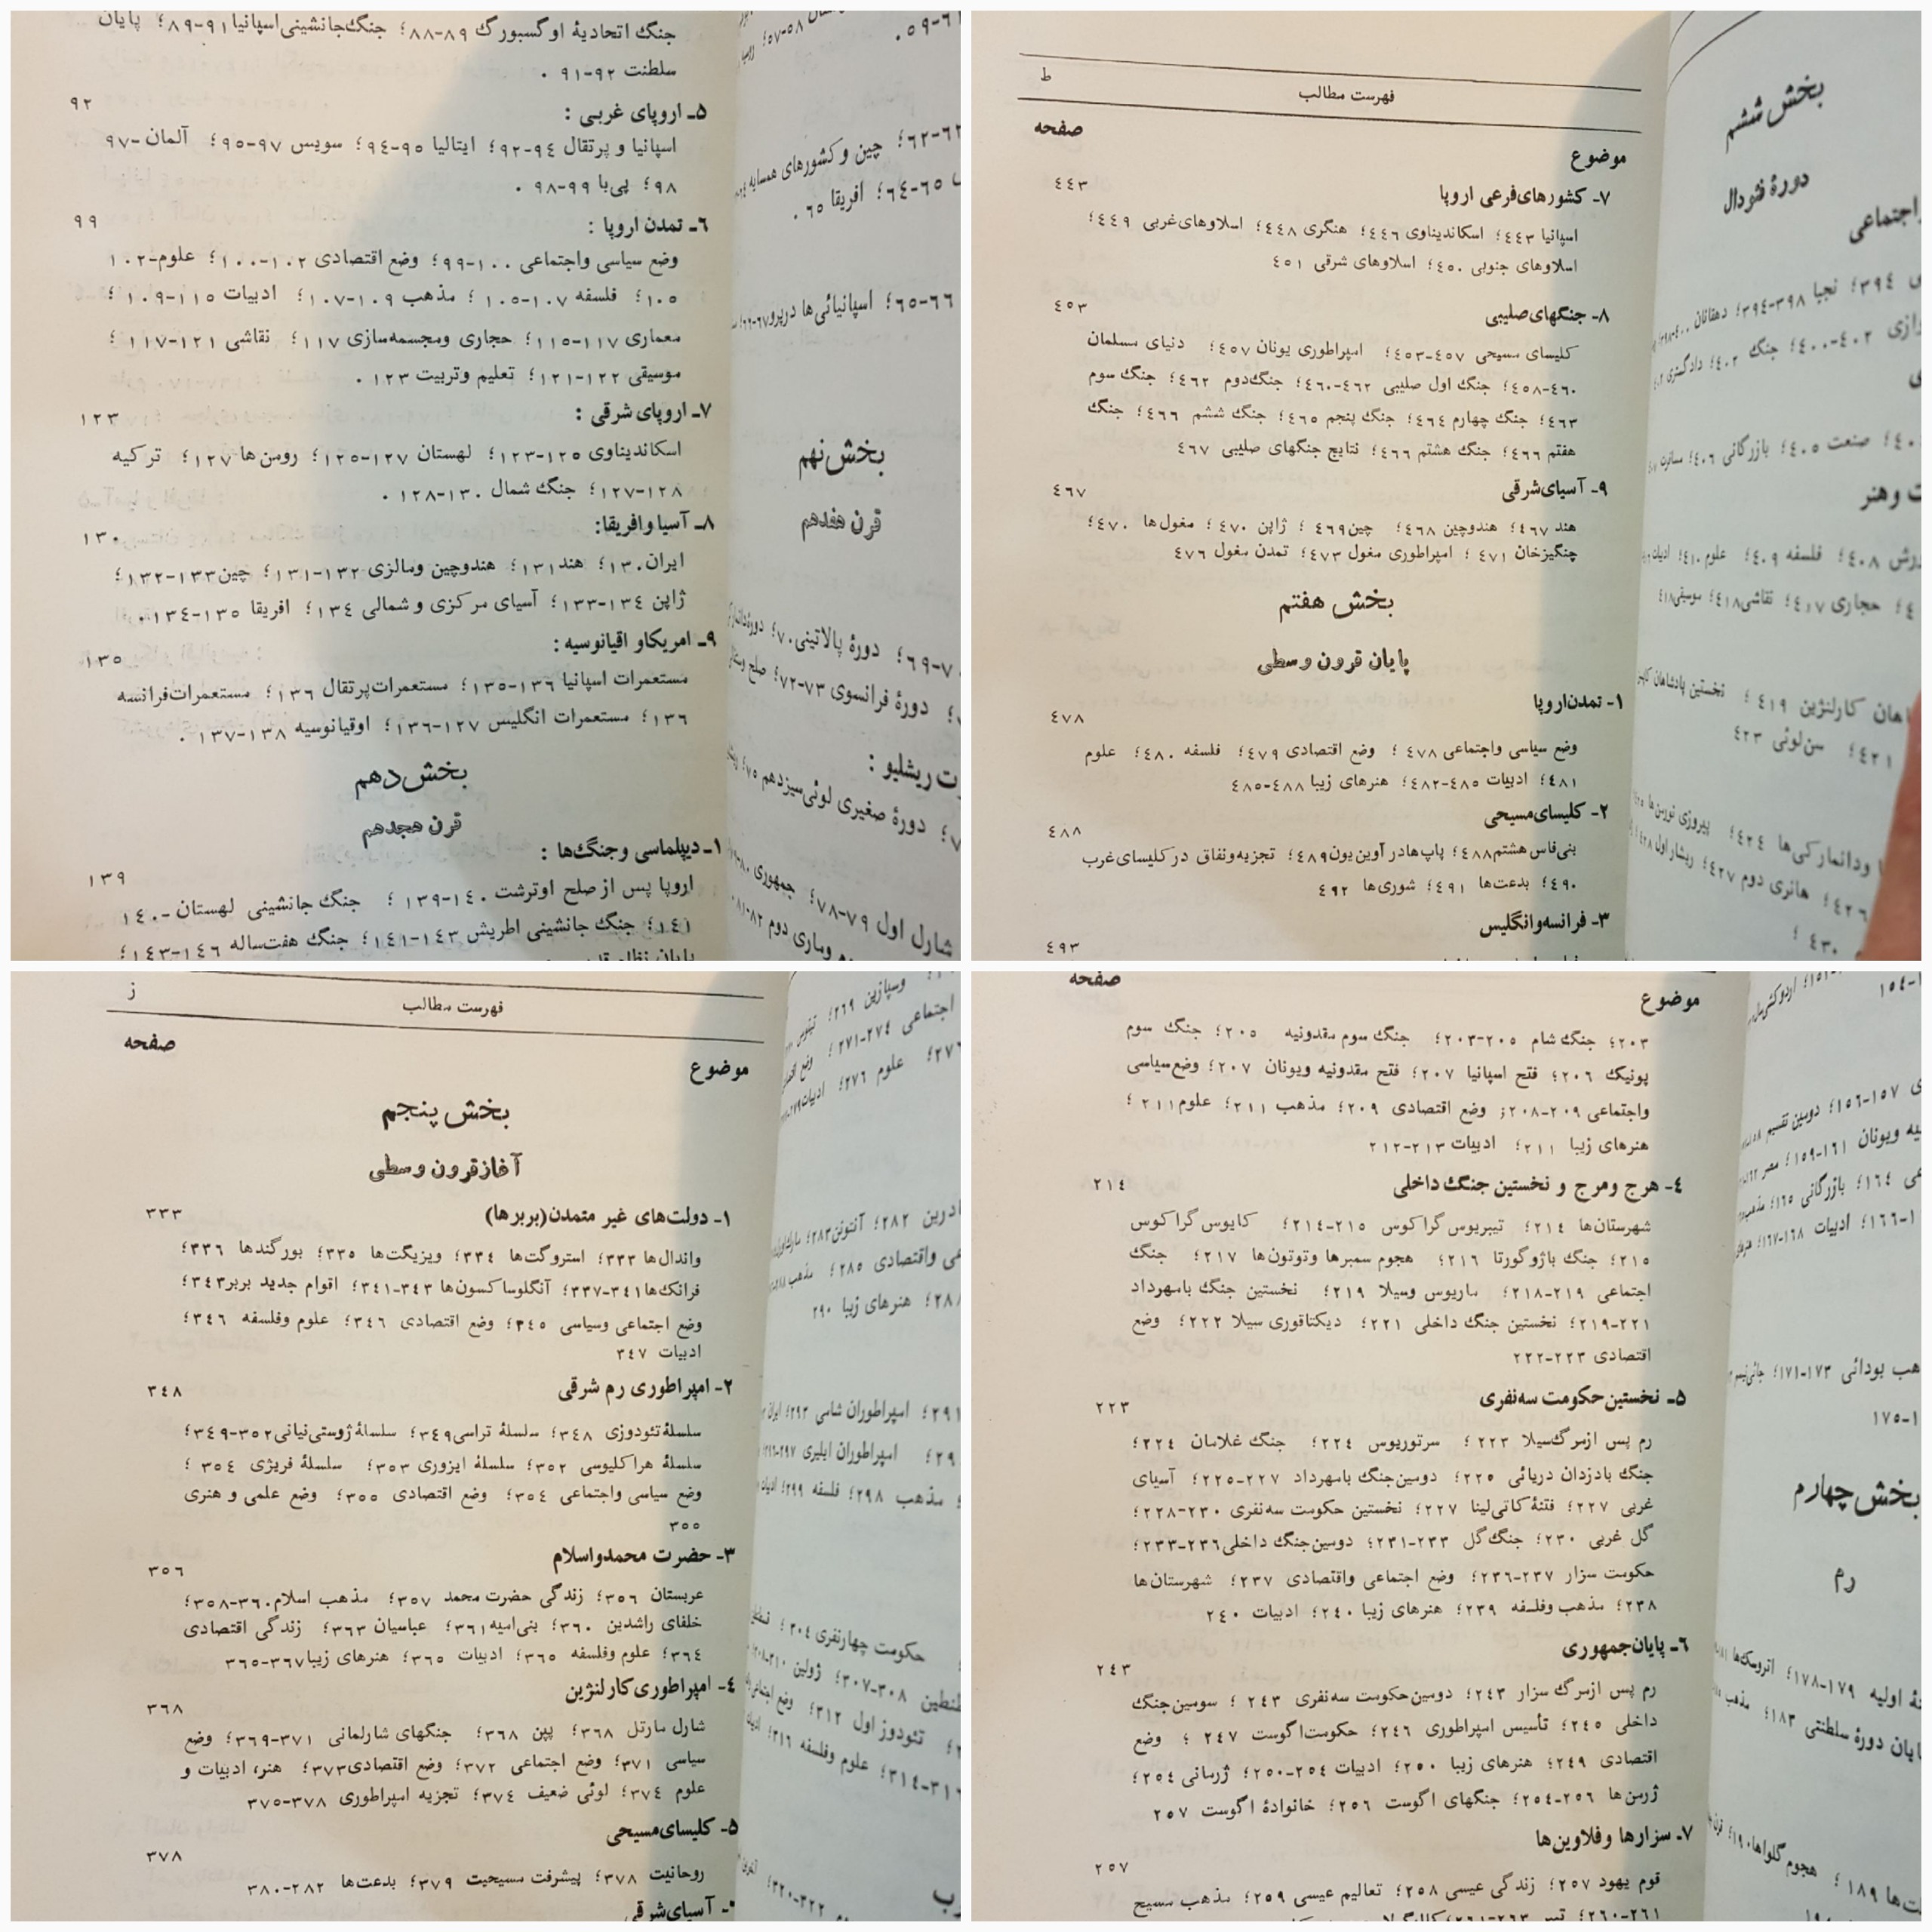 جنگ اتحادیهٔ اوگسبورگ ۸۹-۸۸؛ جنگ‌جانشینی‌اسپانیا ۹۱-۸۹؛ پایان
سلطنت ۹۲-۹۱ .
۵ـ اروپای غربی : ۹۲
اسپانیا و پرتقال ۹۴-۹۲؛ ایتالیا ۹۵-۹۴؛ سویس ۹۷-۹۵؛ آلمان ۹۷-
۹۸؛ پی‌با ۹۹-۹۸ .
۶ـ تمدن اروپا : ۹۹
وضع سیاسی واجتماعی ۱۰۰-۹۹؛ وضع اقتصادی ۱۰۲-۱۰۰؛ علوم ۱۰۲-
۱۰۵؛ فلسفه ۱۰۷-۱۰۵ ؛ مذهب ۱۰۹-۱۰۷؛ ادبیات ۱۱۵-۱۰۹ ؛
معماری ۱۱۷-۱۱۵؛ حجاری ومجسمه‌سازی ۱۱۷؛ نقاشی ۱۲۱-۱۱۷ ؛
موسیقی ۱۲۲-۱۲۱؛ تعلیم وتربیت ۱۲۳ .
۷ـ اروپای شرقی : ۱۲۳
اسکاندیناوی ۱۲۵-۱۲۳؛ لهستان ۱۲۷-۱۲۵؛ روس‌ها ۱۲۷؛ ترکیه
۱۲۸-۱۲۷؛ جنگ شمال ۱۳۰-۱۲۸ .
۸ـ آسیا وافریقا: ۱۳۰
ایران ۱۳۰؛ هند ۱۳۱؛ هندوچین ومالزی ۱۳۲-۱۳۱؛ چین ۱۳۳-۱۳۲؛
ژاپن ۱۳۴-۱۳۳؛ آسیای مرکزی و شمالی ۱۳۴؛ افریقا ۱۳۵-۱۳۴.
۹ـ امریکاو اقیانوسیه : ۱۳۵
مستعمرات اسپانیا ۱۳۶-۱۳۵؛ مستعمرات‌پرتقال ۱۳۶؛ مستعمرات‌فرانسه
۱۳۶؛ مستعمرات انگلیس ۱۲۷-۱۳۶؛ اوقیانوسیه ۱۳۸-۱۳۷ .
بخش‌دهم
قرن هجدهم
۱ـ دیپلماسی وجنگ‌ها : ۱۳۹
اروپا پس از صلح اوترشت ۱۴۰-۱۳۹ ؛ جنگ جانشینی لهستان ۱۴۰-
۱۴۱؛ جنگ جانشینی اطریش ۱۴۳-۱۴۱؛ جنگ هفت‌ساله ۱۴۶-۱۴۳؛
چین وکشورهای همسایه
۶۵-۶۴؛ افریقا ۶۵ .
۶۶-۶۵؛ اسپانیائی‌ها درپرو
بخش‌نهم
قرن هفدهم
۷۰-۶۹؛ دورهٔ پالاتینی ۷۰؛
؛ دورهٔ فرانسوی ۷۳-۷۲؛ صلح
ریشلیو :
؛ دورهٔ صغیری لوئی‌سیزدهم ۷۵؛
شارل اول ۷۹-۷۸؛ جمهوری
وماری دوم ۸۲-۸۱
فهرست مطالب ط
موضوع صفحه
۷- کشورهای‌فرعی اروپا ۴۴۳
اسپانیا ۴۴۳؛ اسکاندیناوی ۴۴۶؛ هنگری ۴۴۸؛ اسلاوهای‌غربی ۴۴۹؛
اسلاوهای جنوبی ۴۵۰؛ اسلاوهای شرقی ۴۵۱
۸- جنگهای‌صلیبی ۴۵۳
کلیسای مسیحی ۴۵۷-۴۵۳؛ امپراطوری یونان ۴۵۷؛ دنیای مسلمان
۴۶۰-۴۵۸؛ جنگ اول صلیبی ۴۶۲-۴۶۰؛ جنگ‌دوم ۴۶۲؛ جنگ سوم
۴۶۳؛ جنگ چهارم ۴۶۴؛ جنگ پنجم ۴۶۵؛ جنگ ششم ۴۶۶؛ جنگ
هفتم ۴۶۶؛ جنگ هشتم ۴۶۶؛ نتایج جنگهای صلیبی ۴۶۷
۹- آسیای‌شرقی ۴۶۷
هند ۴۶۷؛ هندوچین ۴۶۸؛ چین ۴۶۹ ؛ ژاپن ۴۷۰ ؛ مغول‌ها ۴۷۰؛
چنگیزخان ۴۷۱ ؛ امپراطوری مغول ۴۷۳؛ تمدن مغول ۴۷۶
بخش هفتم
پایان قرون وسطی
۱- تمدن‌اروپا ۴۷۸
وضع سیاسی واجتماعی ۴۷۸ ؛ وضع اقتصادی ۴۷۹؛ فلسفه ۴۸۰؛ علوم
۴۸۱؛ ادبیات ۴۸۵-۴۸۲؛ هنرهای زیبا ۴۸۸-۴۸۵
۲- کلیسای‌مسیحی ۴۸۸
بنی‌فاس هشتم ۴۸۸؛ پاپ‌هادر آوین‌یون ۴۸۹؛ تجزیه‌ونفاق در کلیسای‌غرب
۴۹۰؛ بدعت‌ها ۴۹۱؛ شوری‌ها ۴۹۲
۳- فرانسه‌وانگلیس ۴۹۳
بخش ششم
دورهٔ فئودال
اجتماعی
۳۹۴؛ نجبا ۳۹۸-۳۹۴؛ دهقانان
۴۰۲-۴۰۰؛ جنگ ۴۰۲؛ دادگستری
؛ صنعت ۴۰۵؛ بازرگانی ۴۰۶؛
وهنر
۴۰۸؛ فلسفه ۴۰۹؛ علوم ۴۱۰؛
؛ حجاری ۴۱۷؛ نقاشی ۴۱۸؛ موسیقی ۴۱۸
کارلنژین ۴۱۹ ؛ نخستین پادشاهان
۴۲۱؛ سن‌لوئی ۴۲۳
ودانمارکی‌ها ۴۲۴؛ پیروزی نورمن‌ها
۴۲۶؛ هانری دوم ۴۲۷؛ ریشار اول ۴۲۸
۴۳۰ ؛
فهرست مطالب ز
موضوع صفحه
بخش پنجم
آغازقرون وسطی
۱- دولت‌های غیر متمدن(بربرها) ۳۳۳
واندال‌ها ۳۳۳؛ استروگت‌ها ۳۳۴؛ ویزیگت‌ها ۳۳۵؛ بورگندها ۳۳۶؛
فرانک‌ها ۳۴۱-۳۳۷؛ آنگلوساکسون‌ها ۳۴۳-۳۴۱؛ اقوام جدید بربر ۳۴۳؛
وضع اجتماعی وسیاسی ۳۴۵؛ وضع اقتصادی ۳۴۶؛ علوم وفلسفه ۳۴۶؛
ادبیات ۳۴۷
۲- امپراطوری رم شرقی ۳۴۸
سلسلهٔ تئودوزی ۳۴۸؛ سلسلهٔ تراسی ۳۴۹؛ سلسلهٔ ژوستی‌نیانی ۳۵۲-۳۴۹؛
سلسلهٔ هراکلیوسی ۳۵۲؛ سلسلهٔ ایزوری ۳۵۳؛ سلسلهٔ فریژی ۳۵۴ ؛
وضع سیاسی واجتماعی ۳۵۴؛ وضع اقتصادی ۳۵۵؛ وضع علمی و هنری
۳۵۵
۳- حضرت محمدواسلام ۳۵۶
عربستان ۳۵۶؛ زندگی حضرت محمد ۳۵۷؛ مذهب اسلام ۳۶۰-۳۵۸؛
خلفای راشدین ۳۶۰؛ بنی‌امیه ۳۶۱؛ عباسیان ۳۶۳؛ زندگی اقتصادی
۳۶۴؛ علوم وفلسفه ۳۶۵؛ ادبیات ۳۶۵؛ هنرهای زیبا ۳۶۷-۳۶۵
۴- امپراطوری‌کارلنژین ۳۶۸
شارل مارتل ۳۶۸؛ پپن ۳۶۸؛ جنگهای شارلمانی ۳۷۱-۳۶۹؛ وضع
سیاسی ۳۷۱؛ وضع اجتماعی ۳۷۲؛ وضع اقتصادی ۳۷۳؛ هنر، ادبیات و
علوم ۳۷۴؛ لوئی ضعیف ۳۷۴؛ تجزیه امپراطوری ۳۷۸-۳۷۵
۵- کلیسای‌مسیحی ۳۷۸
روحانیت ۳۷۸؛ پیشرفت مسیحیت ۳۷۹؛ بدعت‌ها ۲۸۲-۳۸۰
آسیای‌شرقی
وسپازین ۲۶۹؛ تیتوس
اجتماعی ۲۷۴-۲۷۱؛ وضع
؛ علوم ۲۷۶؛ ادبیات
۲۸۲؛ آنتونن ۲۸۳؛
واقتصادی ۲۸۵؛ مذهب
؛ هنرهای زیبا ۲۹۰
؛ امپراطوران شامی ۲۹۳؛ ایران
؛ امپراطوران ایلیری ۲۹۷
؛ مذهب ۲۹۸؛ فلسفه ۲۹۹؛ ادبیات
حکومت چهارنفری ۳۰۴ ؛
۳۰۸-۳۰۷؛ ژولین ۳۱۰
؛ تئودوز اول ۳۱۲؛ وضع اجتماعی
؛ علوم وفلسفه ۳۱۶؛
موضوع صفحه
۲۰۳؛ جنگ شام ۲۰۵-۲۰۳؛ جنگ سوم مقدونیه ۲۰۵؛ جنگ سوم
پونیک ۲۰۶؛ فتح اسپانیا ۲۰۷؛ فتح مقدونیه ویونان ۲۰۷؛ وضع‌سیاسی
واجتماعی ۲۰۹-۲۰۸؛ وضع اقتصادی ۲۰۹؛ مذهب ۲۱۱؛ علوم ۲۱۱ ؛
هنرهای زیبا ۲۱۱؛ ادبیات ۲۱۳-۲۱۲
۴- هرج ومرج و نخستین جنگ داخلی ۲۱۴
شهرستان‌ها ۲۱۴؛ تیبریوس گراکوس ۲۱۵-۲۱۴؛ کایوس گراکوس
۲۱۵؛ جنگ باژوگورتا ۲۱۶؛ هجوم سمبرها وتوتون‌ها ۲۱۷؛ جنگ
اجتماعی ۲۱۹-۲۱۸؛ ماریوس وسیلا ۲۱۹؛ نخستین جنگ بامهرداد
۲۲۱-۲۱۹؛ نخستین جنگ داخلی ۲۲۱؛ دیکتاتوری سیلا ۲۲۲؛ وضع
اقتصادی ۲۲۳-۲۲۲
۵- نخستین‌حکومت سه‌نفری ۲۲۳
رم پس ازمرگ‌سیلا ۲۲۳؛ سرتوریوس ۲۲۴؛ جنگ غلامان ۲۲۴؛
جنگ بادزدان دریائی ۲۲۵؛ دومین‌جنگ بامهرداد ۲۲۷-۲۲۵؛ آسیای
غربی ۲۲۷؛ فتنهٔ کاتی‌لینا ۲۲۷؛ نخستین حکومت سه‌نفری ۲۳۰-۲۲۸؛
گل غربی ۲۳۰؛ جنگ‌گل ۲۳۳-۲۳۱؛ دومین‌جنگ داخلی ۲۳۶-۲۳۳؛
حکومت سزار ۲۳۷-۲۳۶؛ وضع اجتماعی واقتصادی ۲۳۷؛ شهرستان‌ها
۲۳۸؛ مذهب وفلسفه ۲۳۹؛ هنرهای زیبا ۲۴۰؛ ادبیات ۲۴۰
۶- پایان‌جمهوری ۲۴۳
رم پس ازمرگ سزار ۲۴۳؛ دومین‌حکومت سه‌نفری ۲۴۳ ؛ سومین‌جنگ
داخلی ۲۴۵؛ تأسیس امپراطوری ۲۴۶؛ حکومت‌اگوست ۲۴۷ ؛ وضع
اقتصادی ۲۴۹؛ هنرهای زیبا ۲۵۰؛ ادبیات ۲۵۴-۲۵۰؛ ژرمانی ۲۵۴؛
ژرمن‌ها ۲۵۶-۲۵۴؛ جنگهای اگوست ۲۵۶؛ خانوادهٔ اگوست ۲۵۷
۷- سزارها وفلاوین‌ها ۲۵۷
قوم یهود ۲۵۷؛ زندگی عیسی ۲۵۸؛ تعالیم عیسی ۲۵۹؛ مذهب مسیح
۱۵۷-۱۵۶؛ دومین تقسیم
ویونان ۱۶۱-۱۵۹؛ مصر
۱۶۴؛ بازرگانی ۱۶۵؛ مذهب
؛ ادبیات ۱۶۸-۱۶۷؛
بودائی ۱۷۳-۱۷۱؛
بخش چهارم
رم
اولیه ۱۷۹-۱۷۸؛ اتروسک‌ها
پایان دورهٔ سلطنتی ۱۸۳؛ مذهب
هجوم گلواها ۱۹۰؛
۱۸۹ ؛